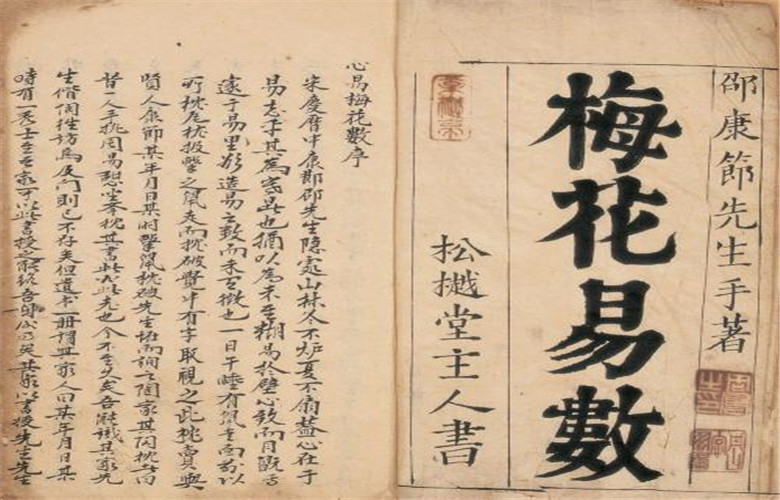 邵康節先生手著
梅花易數
松樾堂主人書
心易梅花數序
宋慶曆中康節邵先生隐處山林冬不炉夏不扇蓋心在于
易忘乎其為寒暑也猶以為未至糊易於壁心致而目翫
邃于易理欲造易之數而未有徵也一日午睡有鼠走而前以
所枕瓦枕投擊之鼠走而枕破覺中有字取視之此枕賣與
賢人康節某年月日某時擊鼠枕破先生怪而詢之陶家其陶枕者曰
昔一人手執周易憩坐举枕其書此必此老也今不至久矣吾能識其家先
生偕陶往訪焉及門則已不存矣但遺書一冊謂其家人曰某年月日某
時有一秀士至吾家可以此書授之能終吾身矣其家以書授先生先生